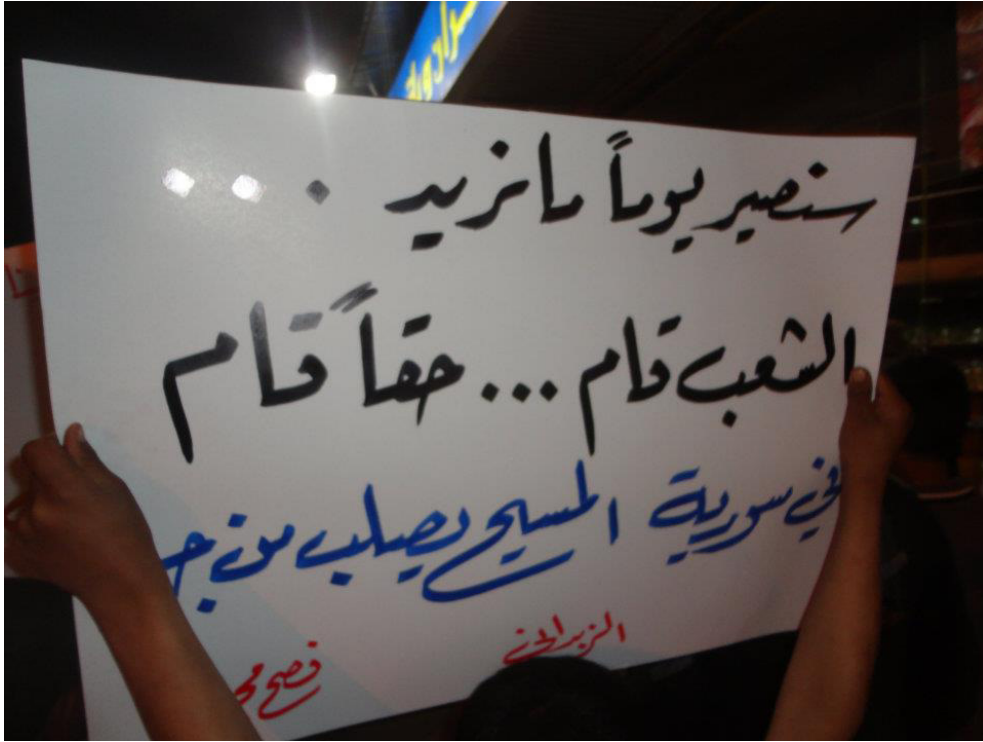 سنصير يوماً ما نريد ...
الشعب قام ... حقاً قام
في سورية المسيح يصلب من
الزبداني
فصح